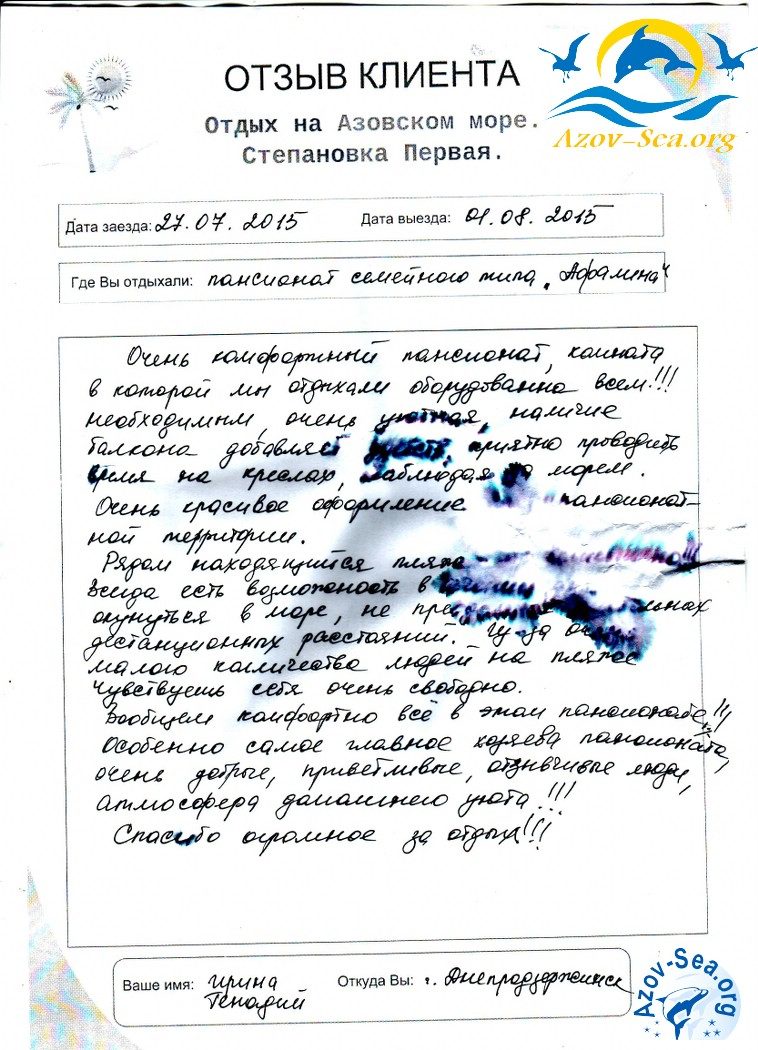 ОТЗЫВ КЛИЕНТА
Отдых на Азовском море.
Степановка Первая.
Azov-Sea.org
Дата заезда: 27.07.2015 Дата выезда: 01.08.2015
Где Вы отдыхали: пансионат семейного типа "Афалина"
Очень комфортный пансионат, комната
в которой мы отдыхали оборудованна всем!!!
необходимым, очень уютная, наличие
балкона добавляет приятно проводить
время на креслах, наблюдая за морем.
Очень красивое оформление пансионат-
ной территории.
Рядом находящийся пляж
Всегда есть возможность в
окунуться в море, не
дестанционных расстояний. Из-за
малого колличества людей на пляже
чувствуешь себя очень свободно.
Вообщем комфортно всё в этом пансионате!!!
Особенно самое главное хозяева пансионата,
очень добрые, приветливые, отзывчивые люди,
атмосфера домашнего уюта!!!
Спасибо огромное за отдых!!!
Ваше имя: Ирина Откуда Вы: г. Днепродзержинск
Генадий
Azov-Sea.org